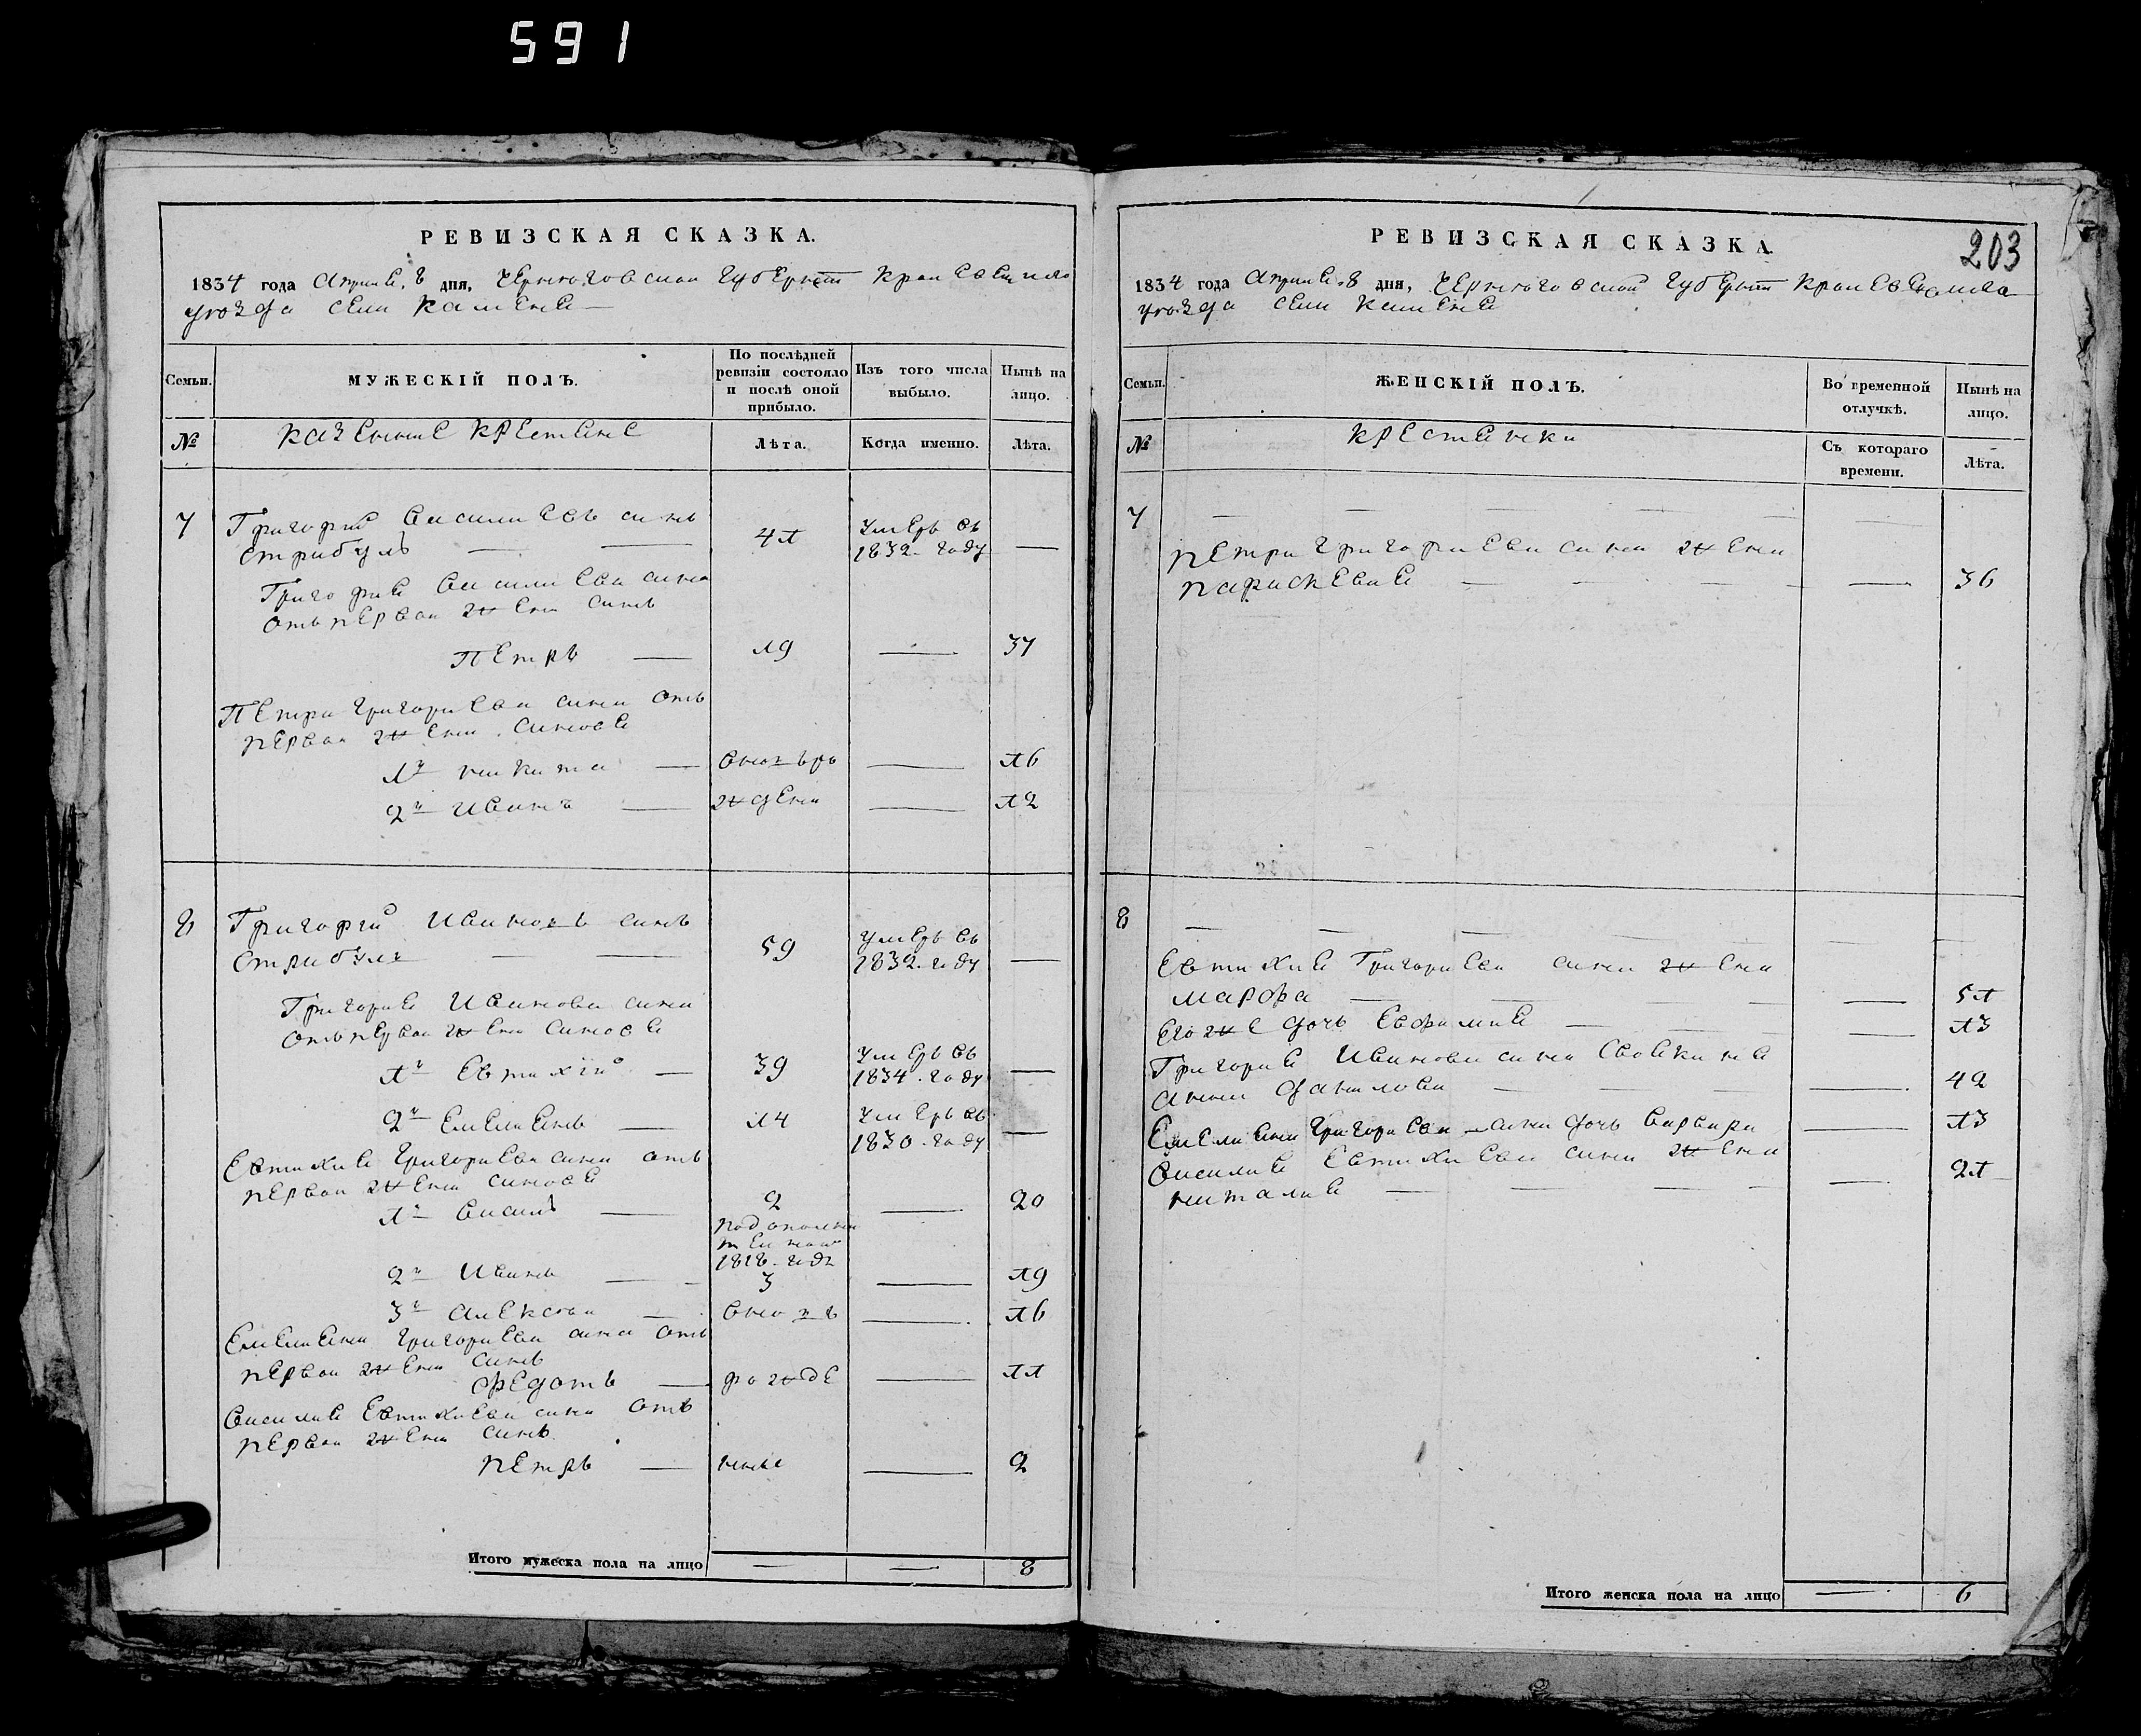 591
РЕВИЗСКАЯ СКАЗКА.
1834 года Априля 8 дня, Черниговской Губернии Кролевецкаго
уезда села Каменя
Семьи.
МУЖЕСКІЙ ПОЛЪ.
По послѣдней ревизіи состояло и послѣ оной прибыло.
Изъ того числа выбыло.
Нынѣ на лицо.
№
казенние крестяне
Лѣта.
Когда именно.
Лѣта.
7 Григорий Василиевъ синъ
Стрибулъ 41 Умеръ въ 1832 году
Григория Василиева сина
отъ первой жени синъ
Петръ 19 37
Петра Григориева сина отъ
первой жени синове
1й никита вновъ ро 16
2й Иванъ ждени 12
8 Григорий Ивановъ синъ
Стрибулъ 59 умеръ въ 1832 году
Григория Иванова сина
отъ первой жени синове
1й Евтихій 39 Умеръ въ 1834 году
2й Емелиянъ 14 Умеръ въ 1830 году
Евтихия Григориева сина отъ
первой жени синове
1й Василь 2 20
по дополни
телной
1818 года
2й Иванъ 3 19
3й алексей вновъ 16
Емелияна Григориева сина отъ
первой жени синъ
Федотъ рожде 11
Василия Евтихиева сина отъ
первой жени синъ
Петръ 2
Итого мужеска пола на лицо 8
РЕВИЗСКАЯ СКАЗКА
203
1834 года Априля 8 дня, Черниговской Губернии Кролевецкаго
уезда села Каменя
Семьи.
ЖЕНСКІЙ ПОЛЪ.
Во временной отлучкѣ.
Нынѣ на лицо.
№
крестянки
Съ котораго времени.
Лѣта.
7
Петра Григориева сина жена
параскевия 36
8
Евтихия Григориева сина жена
марфа 51
его же дочь Евфимия 13
Григория Иванова сина
анна данилова 42
Емелияна Григориева сина дочь варвара 13
Василия Евтихиева сина жена
наталия 21
Итого женска пола на лицо 6